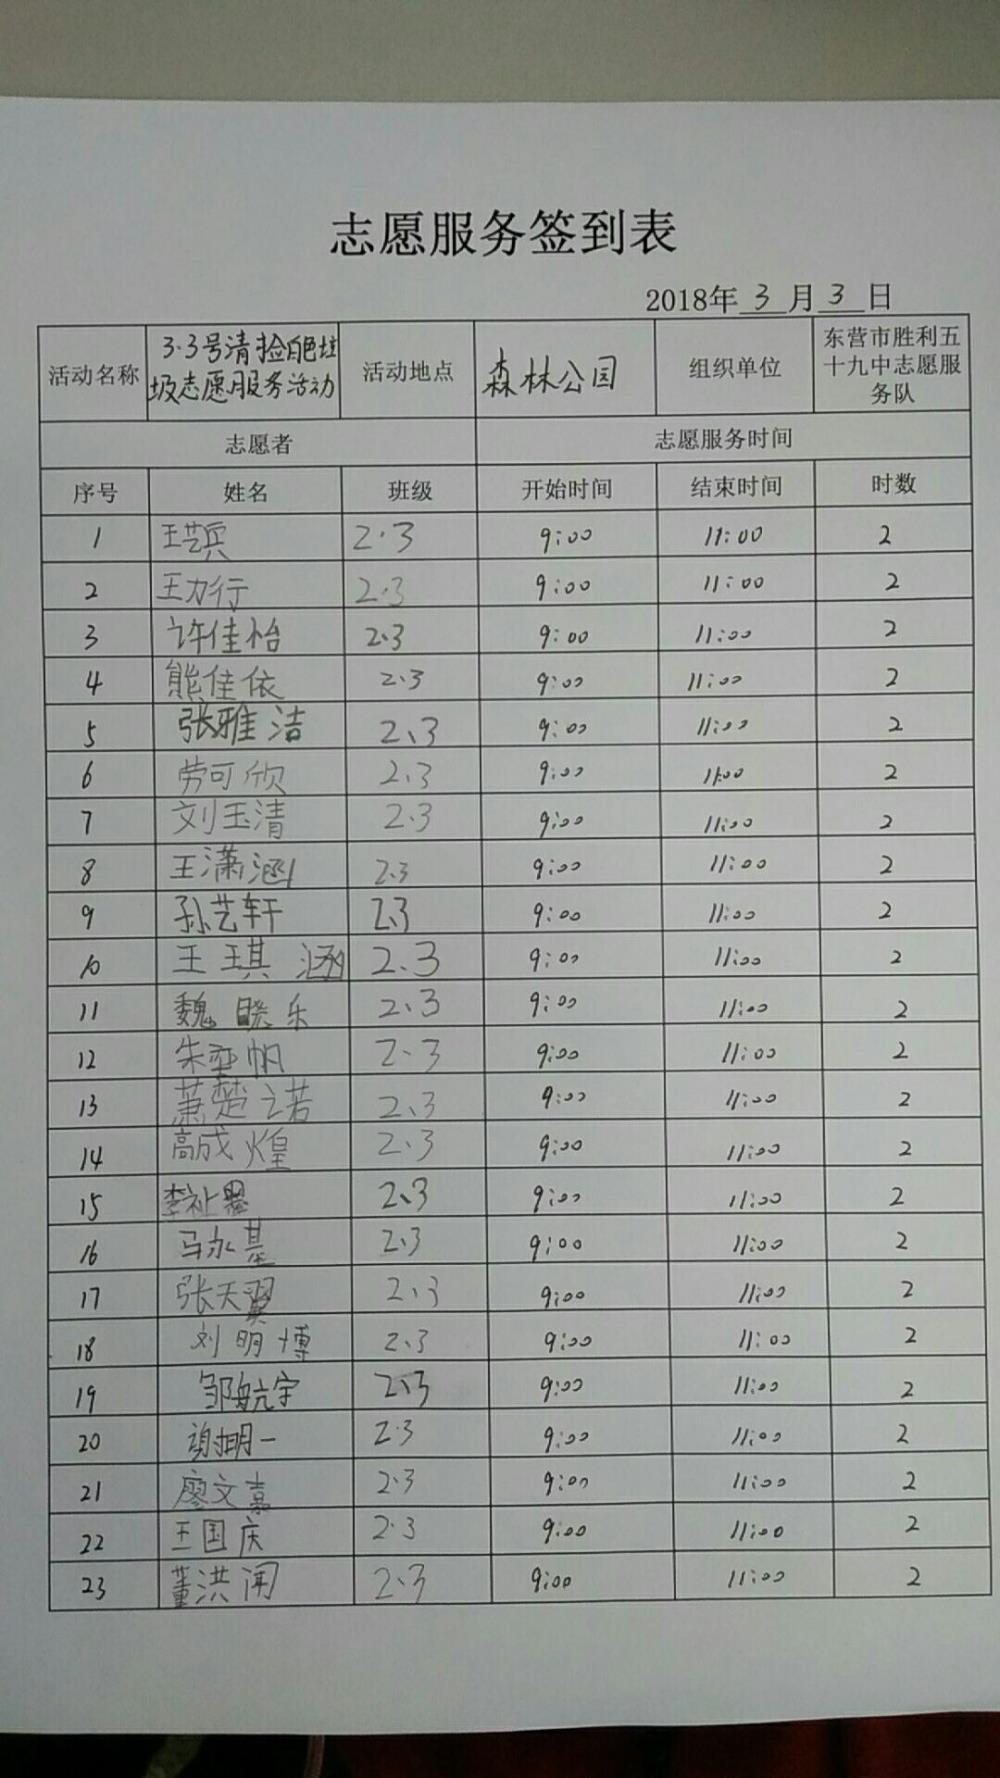 志愿服务签到表
2018年 3 月 3 日
活动名称 3.3号清捡白色垃圾志愿服务活动 活动地点 森林公园 组织单位 东营市胜利五十九中志愿服务队
志愿者 志愿服务时间
序号 姓名 班级 开始时间 结束时间 时数
1 王艺宾 2.3 9:00 11:00 2
2 王力行 2.3 9:00 11:00 2
3 许佳怡 2.3 9:00 11:00 2
4 熊佳依 2.3 9:00 11:00 2
5 张雅洁 2.3 9:00 11:00 2
6 劳可欣 2.3 9:00 11:00 2
7 刘玉清 2.3 9:00 11:00 2
8 王潇涵 2.3 9:00 11:00 2
9 孙艺轩 2.3 9:00 11:00 2
10 王琪涵 2.3 9:00 11:00 2
11 魏晓乐 2.3 9:00 11:00 2
12 朱亚帆 2.3 9:00 11:00 2
13 萧楚诺 2.3 9:00 11:00 2
14 高成煌 2.3 9:00 11:00 2
15 李祉 2.3 9:00 11:00 2
16 马永基 2.3 9:00 11:00 2
17 张天翼 2.3 9:00 11:00 2
18 刘明博 2.3 9:00 11:00 2
19 邹航宇 2.3 9:00 11:00 2
20 一 2.3 9:00 11:00 2
21 廖文嘉 2.3 9:00 11:00 2
22 王国庆 2.3 9:00 11:00 2
23 董洪闻 2.3 9:00 11:00 2